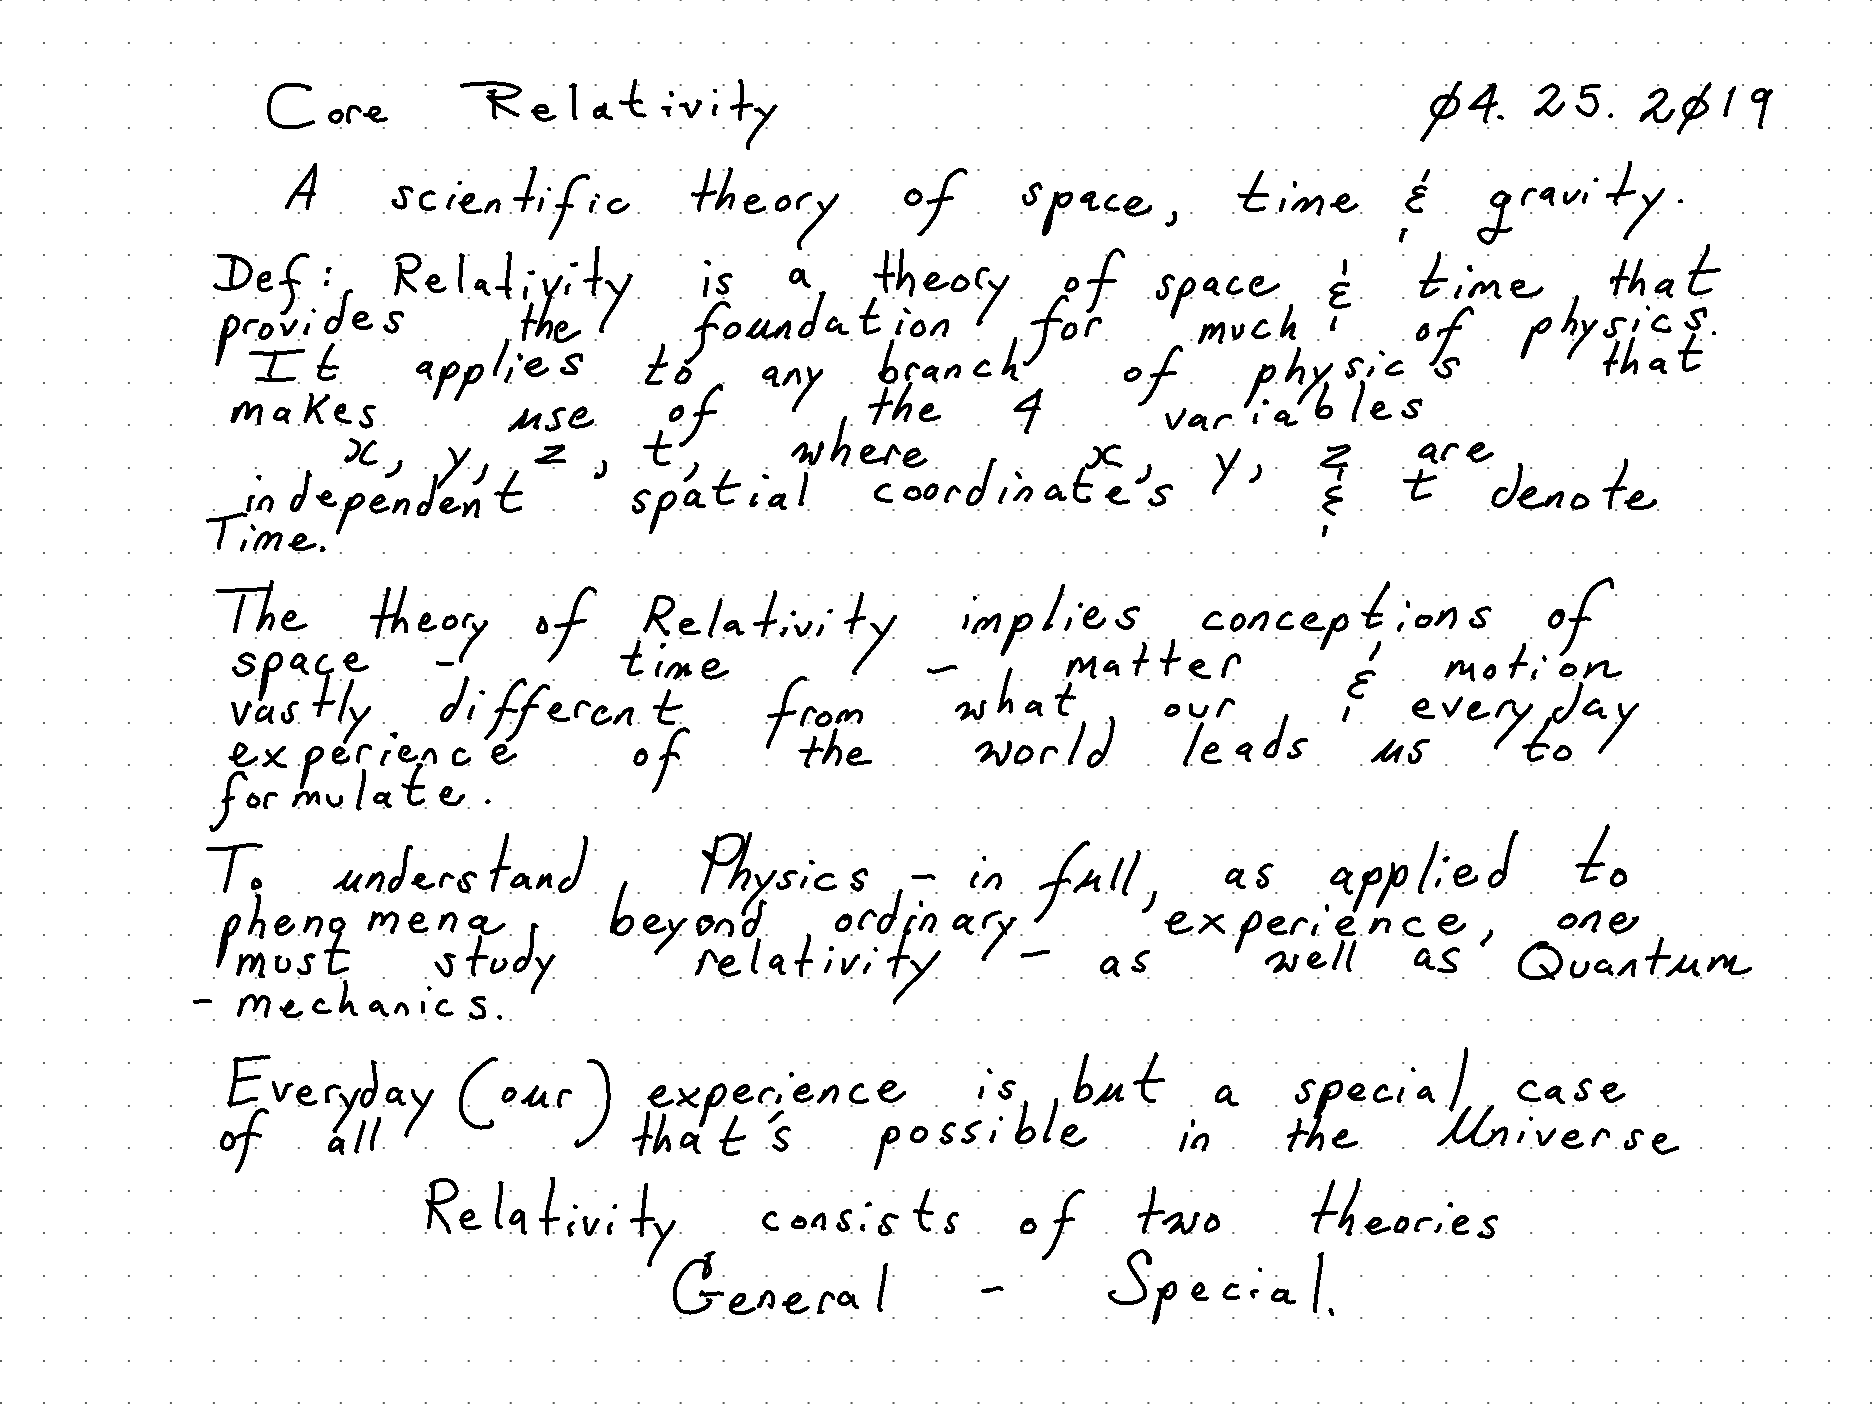 Core Relativity 04.25.2019
A scientific theory of space, time & gravity.
Def: Relativity is a theory of space & time that
provides the foundation for much of physics.
It applies to any branch of physics that
makes use of the 4 variables
x, y, z, t, where x, y, z are
independent spatial coordinate's & t denote
Time.
The theory of Relativity implies conceptions of
space - time - matter & motion
vastly different from what our everyday
experience of the world leads us to
formulate.
To understand Physics - in full, as applied to
phenomena beyond ordinary experience, one
must study relativity - as well as Quantum
- mechanics.
Everyday (our) experience is but a special case
of all that's possible in the Universe
Relativity consists of two theories
General - Special.